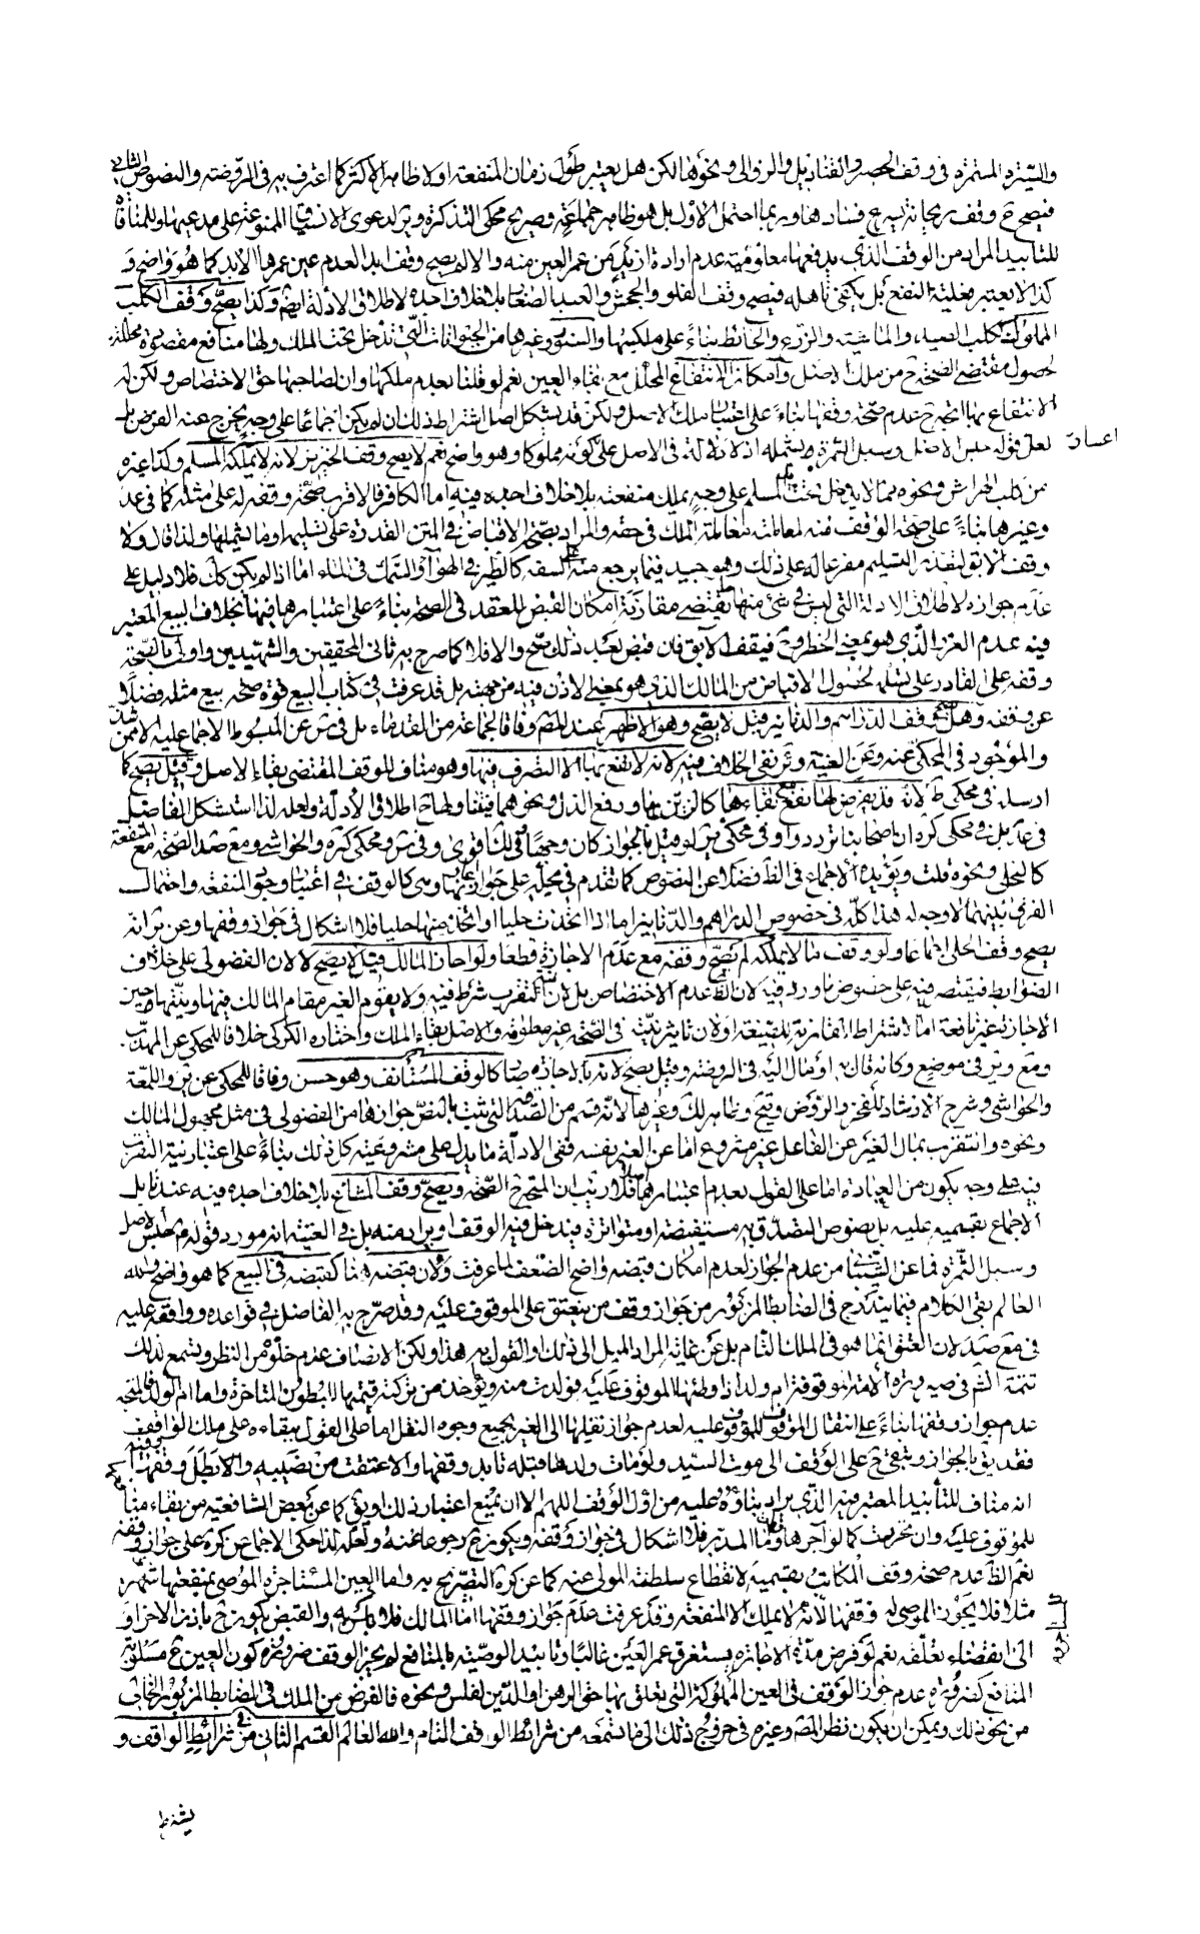 والسيرة المستمرة في وقف الحصر والقناديل والزوالي ونحوها لكن هل يعتبر طول زمان المنفعة اولا ظاهر الأكثر كما اعترف به في الروضة والنصوص الثاني
فيصح وقف ريحانة يسرع فسادها وربما احتمل الاول بل هو ظاهر جماعة وصريح محكي التذكرة لدعوى الانسياق الممنوعة على مدعيها وللمنافاة
للتأبيد المراد من الوقف الذي يدفعها معلومية عدم ارادة ازيد من عمر العين منه والا لم يصح وقف ابدا لعدم عين عمرها الابد كما هو واضح و
كذا لا يعتبر فعلية النفع بل يكفي تأهله فيصح وقف الفلو والجحش والعبد الصغار بلا خلاف اجده لاطلاق الأدلة ايضا وكذا يصح وقف الكلب
المملوك ككلب الصيد والماشية والزرع والحائط بناء على ملكيتها والسنور وغيرها من الحيوانات التي تدخل تحت الملك ولها منافع مقصودة محللة
لحصول مقتضى الصحة ح من ملك الاصل وامكان الانتفاع المحلل مع بقاء العين نعم لو قلنا بعدم ملكها وان لصاحبها حق الاختصاص ولكن له
الانتفاع بها اتجه ح عدم صحة وقفها بناء على اعتبار ملك الاصل ولكن قد يشكل اصل اشتراط ذلك ان لم يكن اجماعا على وجه يخرج عنه الفرض بل
لعل قوله حبس الاصل وسبل الثمرة يشمله اذ لا دلالة في الاصل على كونه مملوكا وهو واضح نعم لا يصح وقف الخنزير لانه لا يملكه المسلم وكذا غيره
من كلب الهراش ونحوه مما لا يدخل تحت المسلم على وجه يملك منفعته بلا خلاف اجده فيه اما الكافر فالاقرب صحة وقفه له على مثله كما في عد
وغيرها بناء على صحة الوقف منه لمعاملته معاملة الملك في حقه والمراد بصحة الاقباض في المتن القدرة على تسليمها وما يشملها ولذا قال ولا
وقف الآبق لتعذر التسليم مفرعا له على ذلك وهو جيد فيما يرجع منه الى السفه كالطير في الهواء والسمك في الماء اما اذا لم يكن كك فلا دليل على
عدم جوازه لاطلاق الادلة التي ليس في شيء منها ما يقتضي مقارنة امكان القبض للعقد في الصحة بناء على اعتبارها فيها بخلاف البيع المعتبر
فيه عدم الغرر الذي هو بمعنى الخطر فيقف الآبق فان قبض بعد ذلك صح والا فلا كما صرح به ثاني المحققين والشهيدين واولى بالصحة
وقفه على القادر على تسلمه لحصول الاقباض من المالك الذي هو بمعنى الاذن فيه من جهته بل قد عرفت في كتاب البيع قوة صحة بيع مثله فضلا
عن وقفه وهل يصح وقف الدراهم والدنانير قيل لا يصح وهو الاظهر عند المصنف وفاقا لجماعة من القدماء بل في عن المبسوط الاجماع عليه الا ممن شذ
والموجود في المحكي عنه وعن الغنية وئر نفي الخلاف فيه لانه لا نفع بها الا التصرف فيها وهو مناف للوقف المقتضي بقاء الاصل وقيل يصح كما
ارسله في محكي ط لانه قد يفرض لها نفع مع بقاءها كالتزين بها ودفع الذل ونحوهما فيتناولها ح اطلاق الأدلة ولعله لذا استشكل الفاضل
في عد بل في محكي كره ان اصحابنا ترددوا وفي محكي ئر لو قيل بالجواز كان وجها وفي لك قوي وفي محكي كره والحواشي ومع صد الصحة مع المنفعة
كالتحلي ونحوه قلت ويؤيده الاجماع في الظ فضلا عن النصوص كما تقدم في محله على جواز عاريتها وهي كالوقف في اعتبار وجود المنفعة واحتمال
الفرق بينهما لا وجه له هذا كله في خصوص الدراهم والدنانير اما اذا اتخذت حليا او اتخذ منها حليا فلا اشكال في جواز وقفها وعن ئر انه
يصح وقف الحلى اجماعا ولو وقف ما لا يملكه لم يصح وقفه مع عدم الاجازة قطعا ولو اجاز المالك قيل لا يصح لان الفضولي على خلاف
الضوابط فيقتصر فيه على خصوص ما ورد فيه لان الظ عدم الاختصاص بل لان التقرب شرط فيه ولا يقوم الغير مقام المالك فيها ونيتها حين
الاجازة غير نافعة اما لاشتراط المقارنة للصيغة او لان تأثير نيته في الصحة غير معلومة والاصل بقاء الملك واختاره الكركي خلافا للمحكي عن المهذب
ومع وئر في موضع وكانه قال به او مال اليه في الروضة وقيل يصح لانه بالاجازة صار كالوقف المستأنف وهو حسن وفاقا للمحكي عن ئر واللمعة
والحواشي وشرح الارشاد للفخر والروض وتيح وظاهر لك وغيرها لانه قسم من الصدقة التي ثبت بالنص جوازها من الفضولي في مثل مجهول المالك
ونحوه والتقرب بمال الغير عن الفاعل غير مشروع اما عن الغير نفسه ففي الادلة ما يدل على مشروعيته كل ذلك بناء على اعتبار نية التقرب
فيه على وجه يكون من العبادة اما على القول بعدم اعتبارها فلا ريب ان المتجه ح الصحة ويصح وقف المشاع بلا خلاف اجده فيه عندنا بل
الاجماع بقسميه عليه بل نصوص التصدق به مستفيضة او متواترة فيدخل فيه الوقف او يراد منه بل في انه مورد قوله ص حبس الاصل
وسبل الثمرة فما عن الشيباني من عدم الجواز لعدم امكان قبضه واضح الضعف لما عرفت ولان قبضه هنا كقبضه في البيع كما هو واضح والله
العالم بقي الكلام فيما يندرج في الضابط المزبور من جواز وقف من ينعتق على الموقوف عليه وقد صرح به الفاضل في قواعده ووافقه عليه
في مع صد لان العتق انما هو في الملك التام بل عن غاية المراد الميل الى ذلك والقول به هذا ولكن الانصاف عدم خلوه من النظر وتسمع لذلك
تتمة انش في صيرورة الامة الموقوفة ام ولد اذا وطئها الموقوف عليه فولدت منه ويؤخذ من تركته قيمتها للبطون المتأخرة واما ام الولد فالمتجه
عدم جواز وقفها بناء على انتقال الموقوف للموقوف عليه لعدم جواز نقلها الى الغير بجميع وجوه النقل اما على القول ببقاءه على ملك الواقف
فقد يق بالجواز ويبقى ح على الوقف الى موت السيد ولو مات ولدها قبله تأبد وقفها والا عتقت من نصيبه والا بطل وقفها
انه مناف للتأبيد المعتبر فيه الذي يراد بناؤه عليه من اول الوقف اللهم الا ان يمنع اعتبار ذلك او يق كما عن بعض الشافعية من بقاء منافعها
للموقوف عليه وان تحررت كما لو آجرها واما المدبر فلا اشكال في جواز وقفه ويكون ح رجوعا عنه ولعله لذا حكى الاجماع عن كره على جواز وقفه
نعم الظ عدم صحة وقف المكاتب بقسميه لانقطاع سلطنة المولى عنه كما عن كره التصريح به واما العين المستأجرة او الموصى بمنفعتها شهرا
مثلا فلا يجوز للموصى له وقفها لانه لا يملك الا المنفعة وقد عرفت عدم جواز وقفها اما المالك فلا باس به والقبض يكون ح باذن الاخر او
الى انقضاء تعلقه نعم لو فرض مدة الاجارة يستغرق عمر العين غالبا وتأبيد الوصية بالمنافع لم يجز الوقف ضرورة كون العين ح مسلوبة
المنافع كضرورة عدم جواز الوقف في العين المملوكة التي تعلق بها حق الرهن او الدين لفلس ونحوه فالغرض من الملك في الضابط المزبور الخالي
من نحو ذلك ويمكن ان يكون نظر المصنف وغيره في خروج ذلك الى ما تسمعه من شرائط الوقف التام والله العالم القسم الثاني في شرائط الواقف و
يشترط